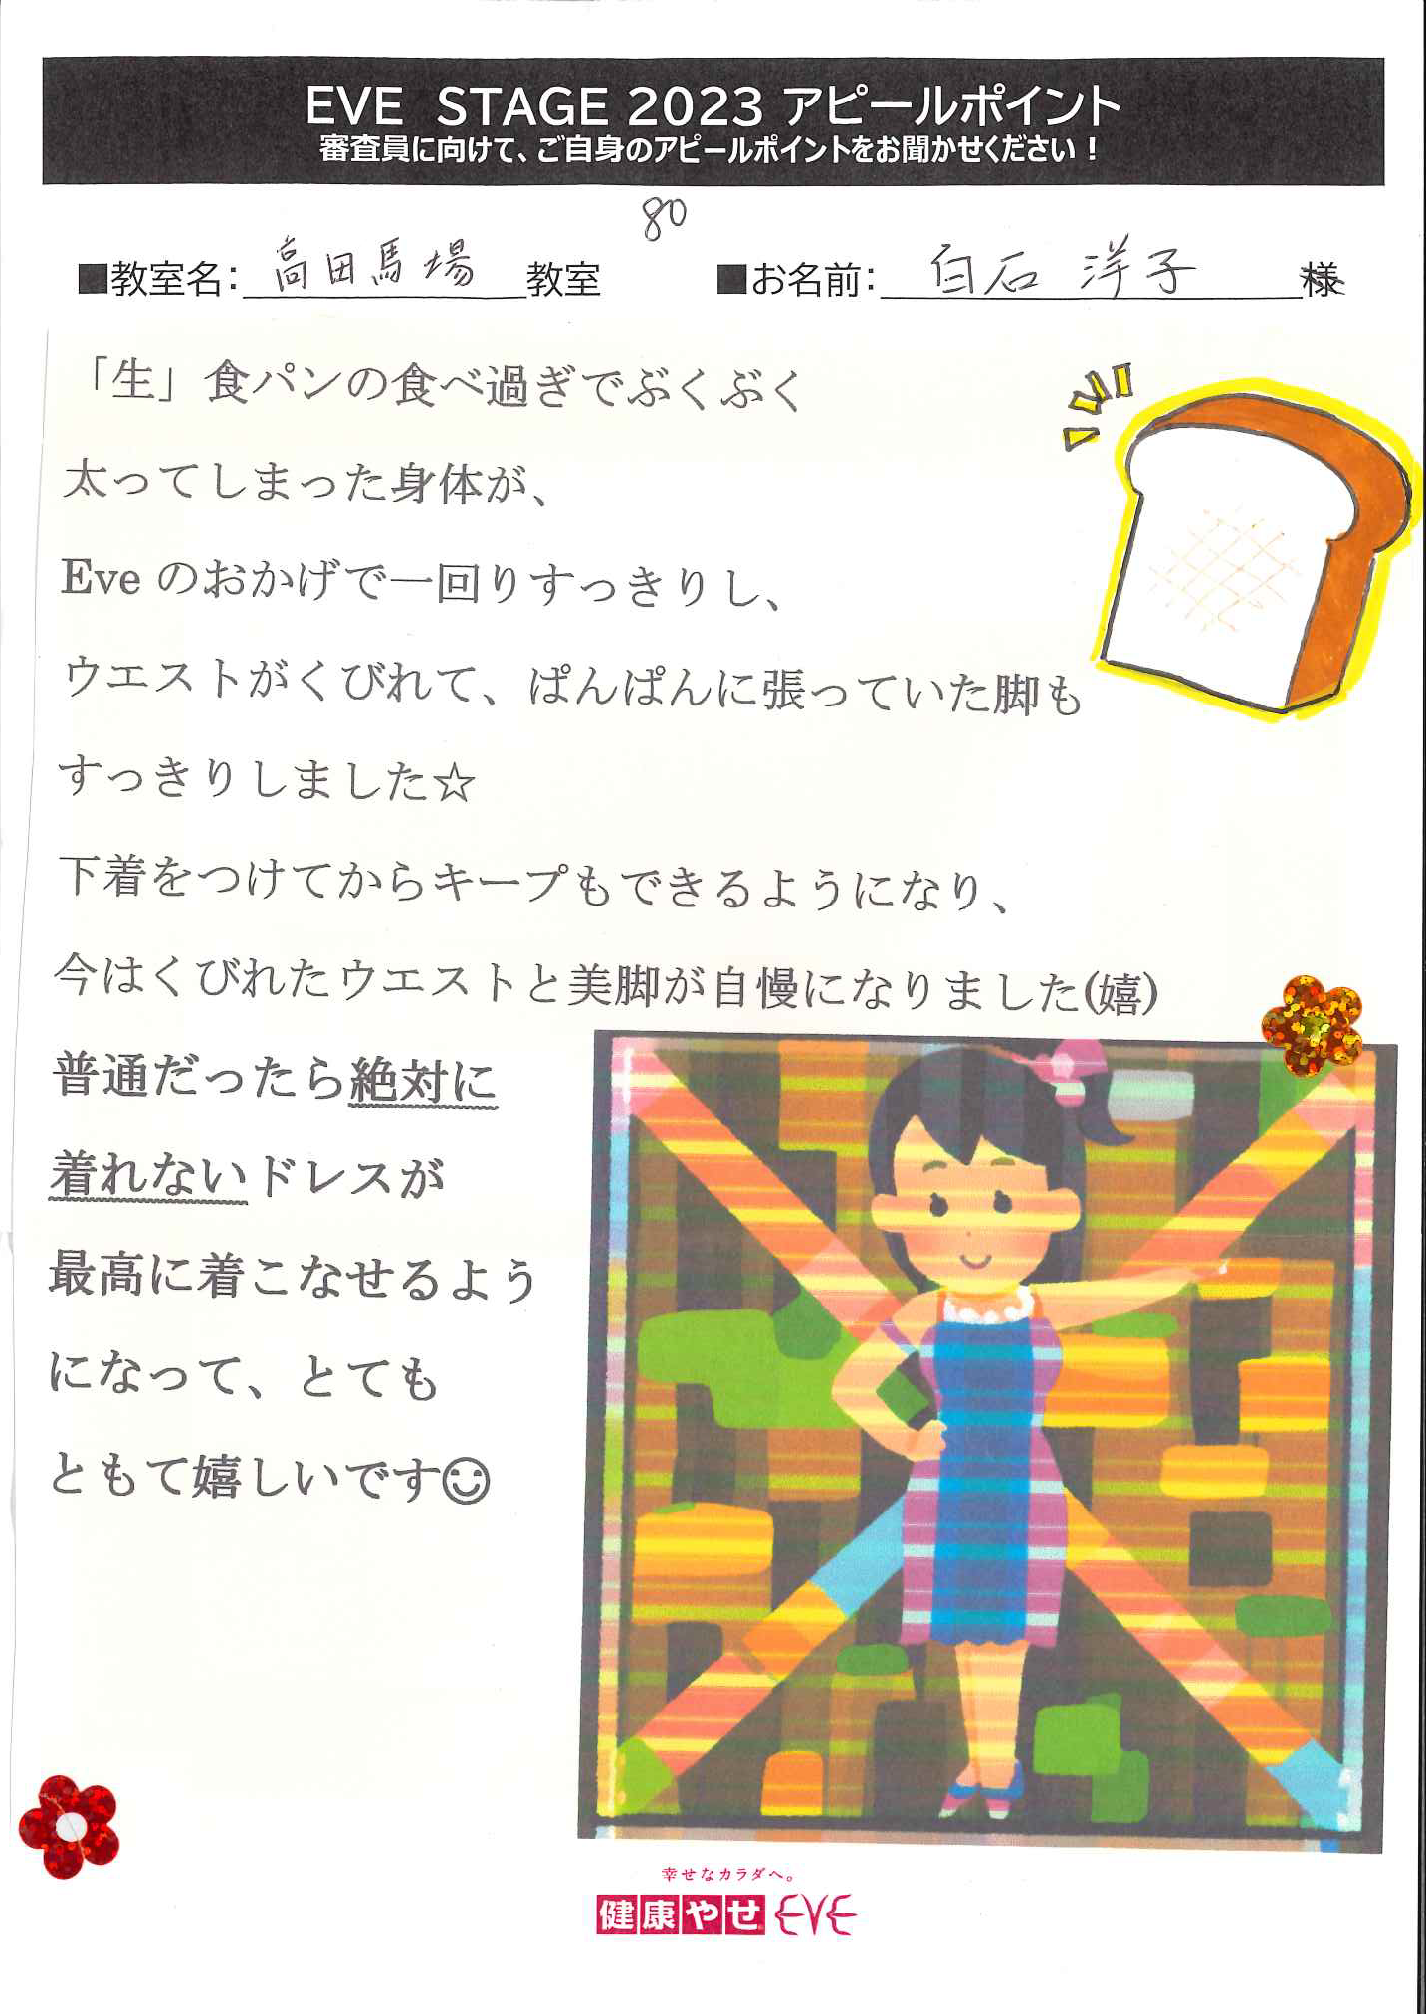 EVE STAGE 2023 アピールポイント
審査員に向けて、ご自身のアピールポイントをお聞かせください！
80
■教室名：高田馬場教室 ■お名前：白石 洋子 様
「生」食パンの食べ過ぎでぶくぶく
太ってしまった身体が、
Eve のおかげで一回りすっきりし、
ウエストがくびれて、ぱんぱんに張っていた脚も
すっきりしました☆
下着をつけてからキープもできるようになり、
今はくびれたウエストと美脚が自慢になりました(嬉)
普通だったら絶対に
着れないドレスが
最高に着こなせるよう
になって、とても
ともて嬉しいです☺
幸せなカラダへ。
健康やせ EVE